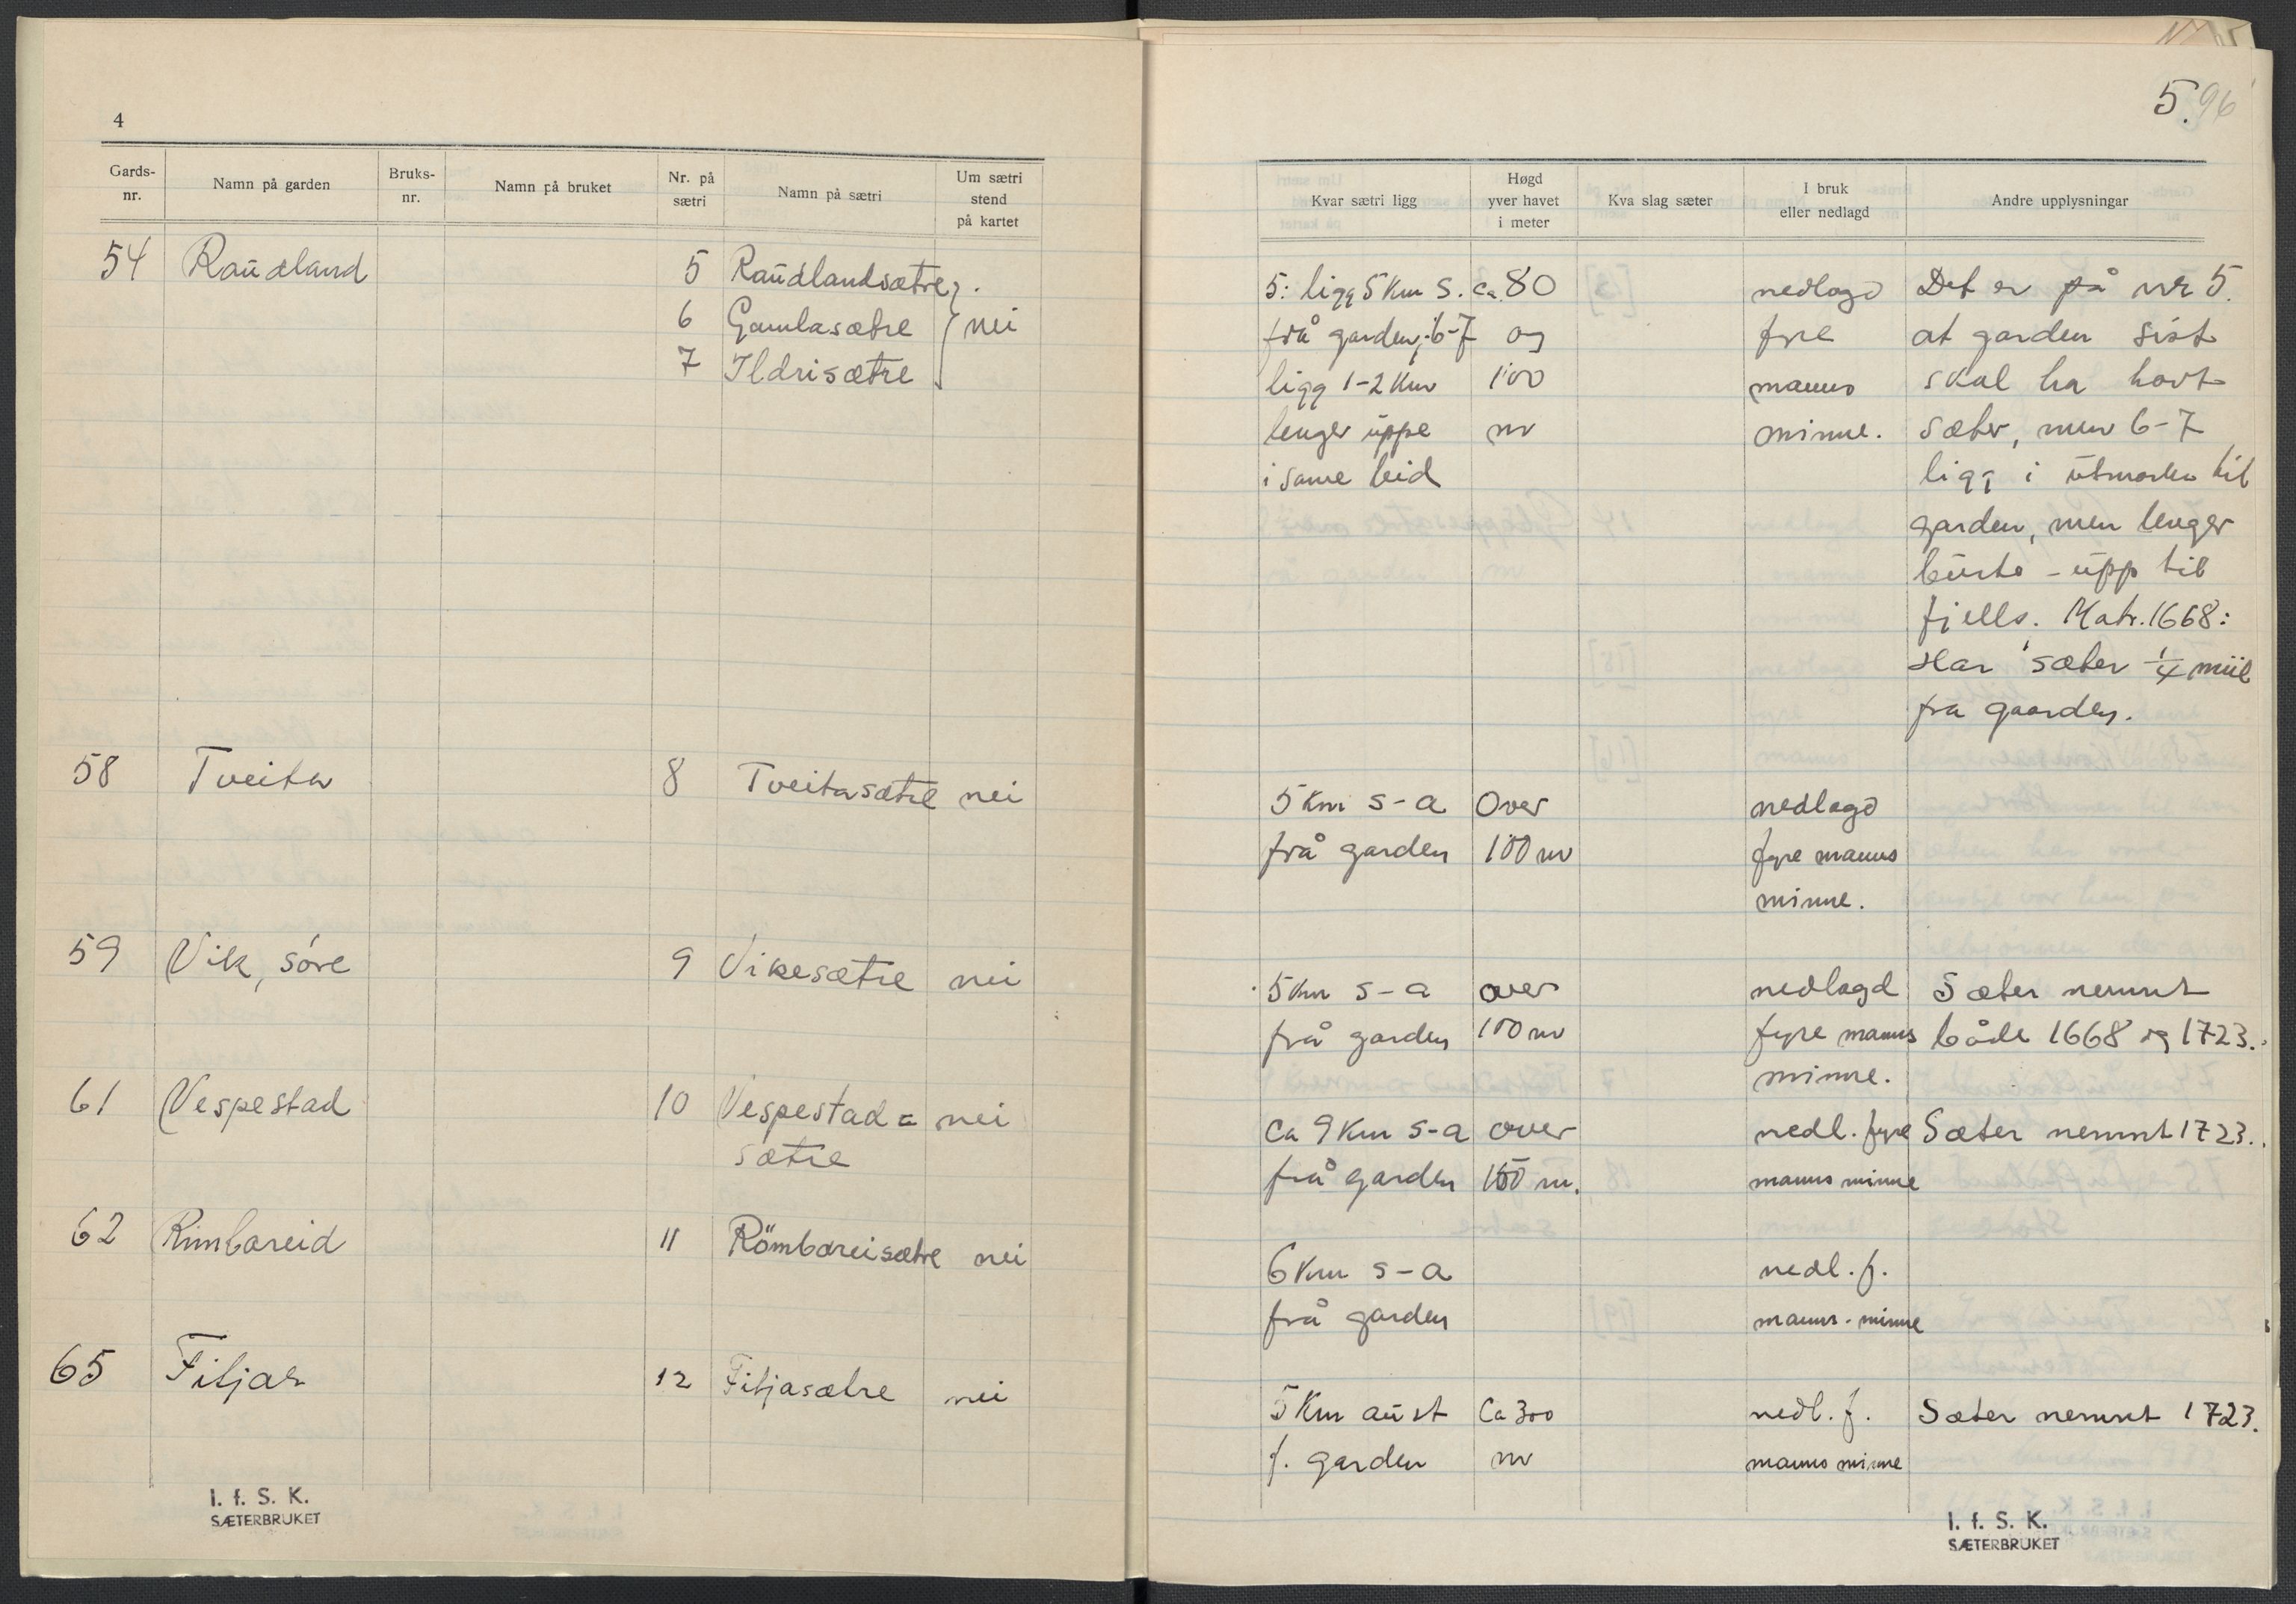 4
Gards-
nr.
Namn på garden
Bruks-
nr.
Namn på bruket
Nr. på
sætri
Namn på sætri
Um sætri
stend
på kartet
54 Raudland 5 Raudlandsætre
6 Gamlasætre nei
7 Ildrisætre
58 Tveita 8 Tveitasætre nei
59 Vik, søre 9 Vikesætre nei
61 Vespestad 10 Vespestad= nei
sætre
62 Rimbareid 11 Römbareisætre nei
65 Fitjar 12 Fitjasætre nei
I. f. S. K.
SÆTERBRUKET
5. 96
Kvar sætri ligg
Høgd
yver havet
i meter
Kva slag sæter
I bruk
eller nedlagd
Andre upplysningar
5: ligg 5 km s. ca. 80 nedlagd Det er på nr 5.
frå garden; 6-7 og fyre at garden sist
ligg 1-2 km 100 manns skal ha havt
lenger uppe m minne. sæter, men 6-7
i same leid ligg i utmarka til
garden, men lenger
burte - upp til
fjells. Matr. 1668:
Har sæter 1/4 miil
fra gaarden.
5 km s-a Over nedlagd
frå garden 100 m fyre manns
minne.
5 km s-a over nedlagd Sæter nemnt
frå garden 100 m fyre manns både 1668 og 1723.
minne.
Ca 9 km s-a over nedl. fyre Sæter nemnt 1723.
frå garden 100 m. manns minne
6 km s-a nedl. f.
frå garden manns-minne
5 km aust Ca 300 nedl. f. Sæter nemnt 1723.
f. garden m manns minne
I. f. S. K.
SÆTERBRUKET